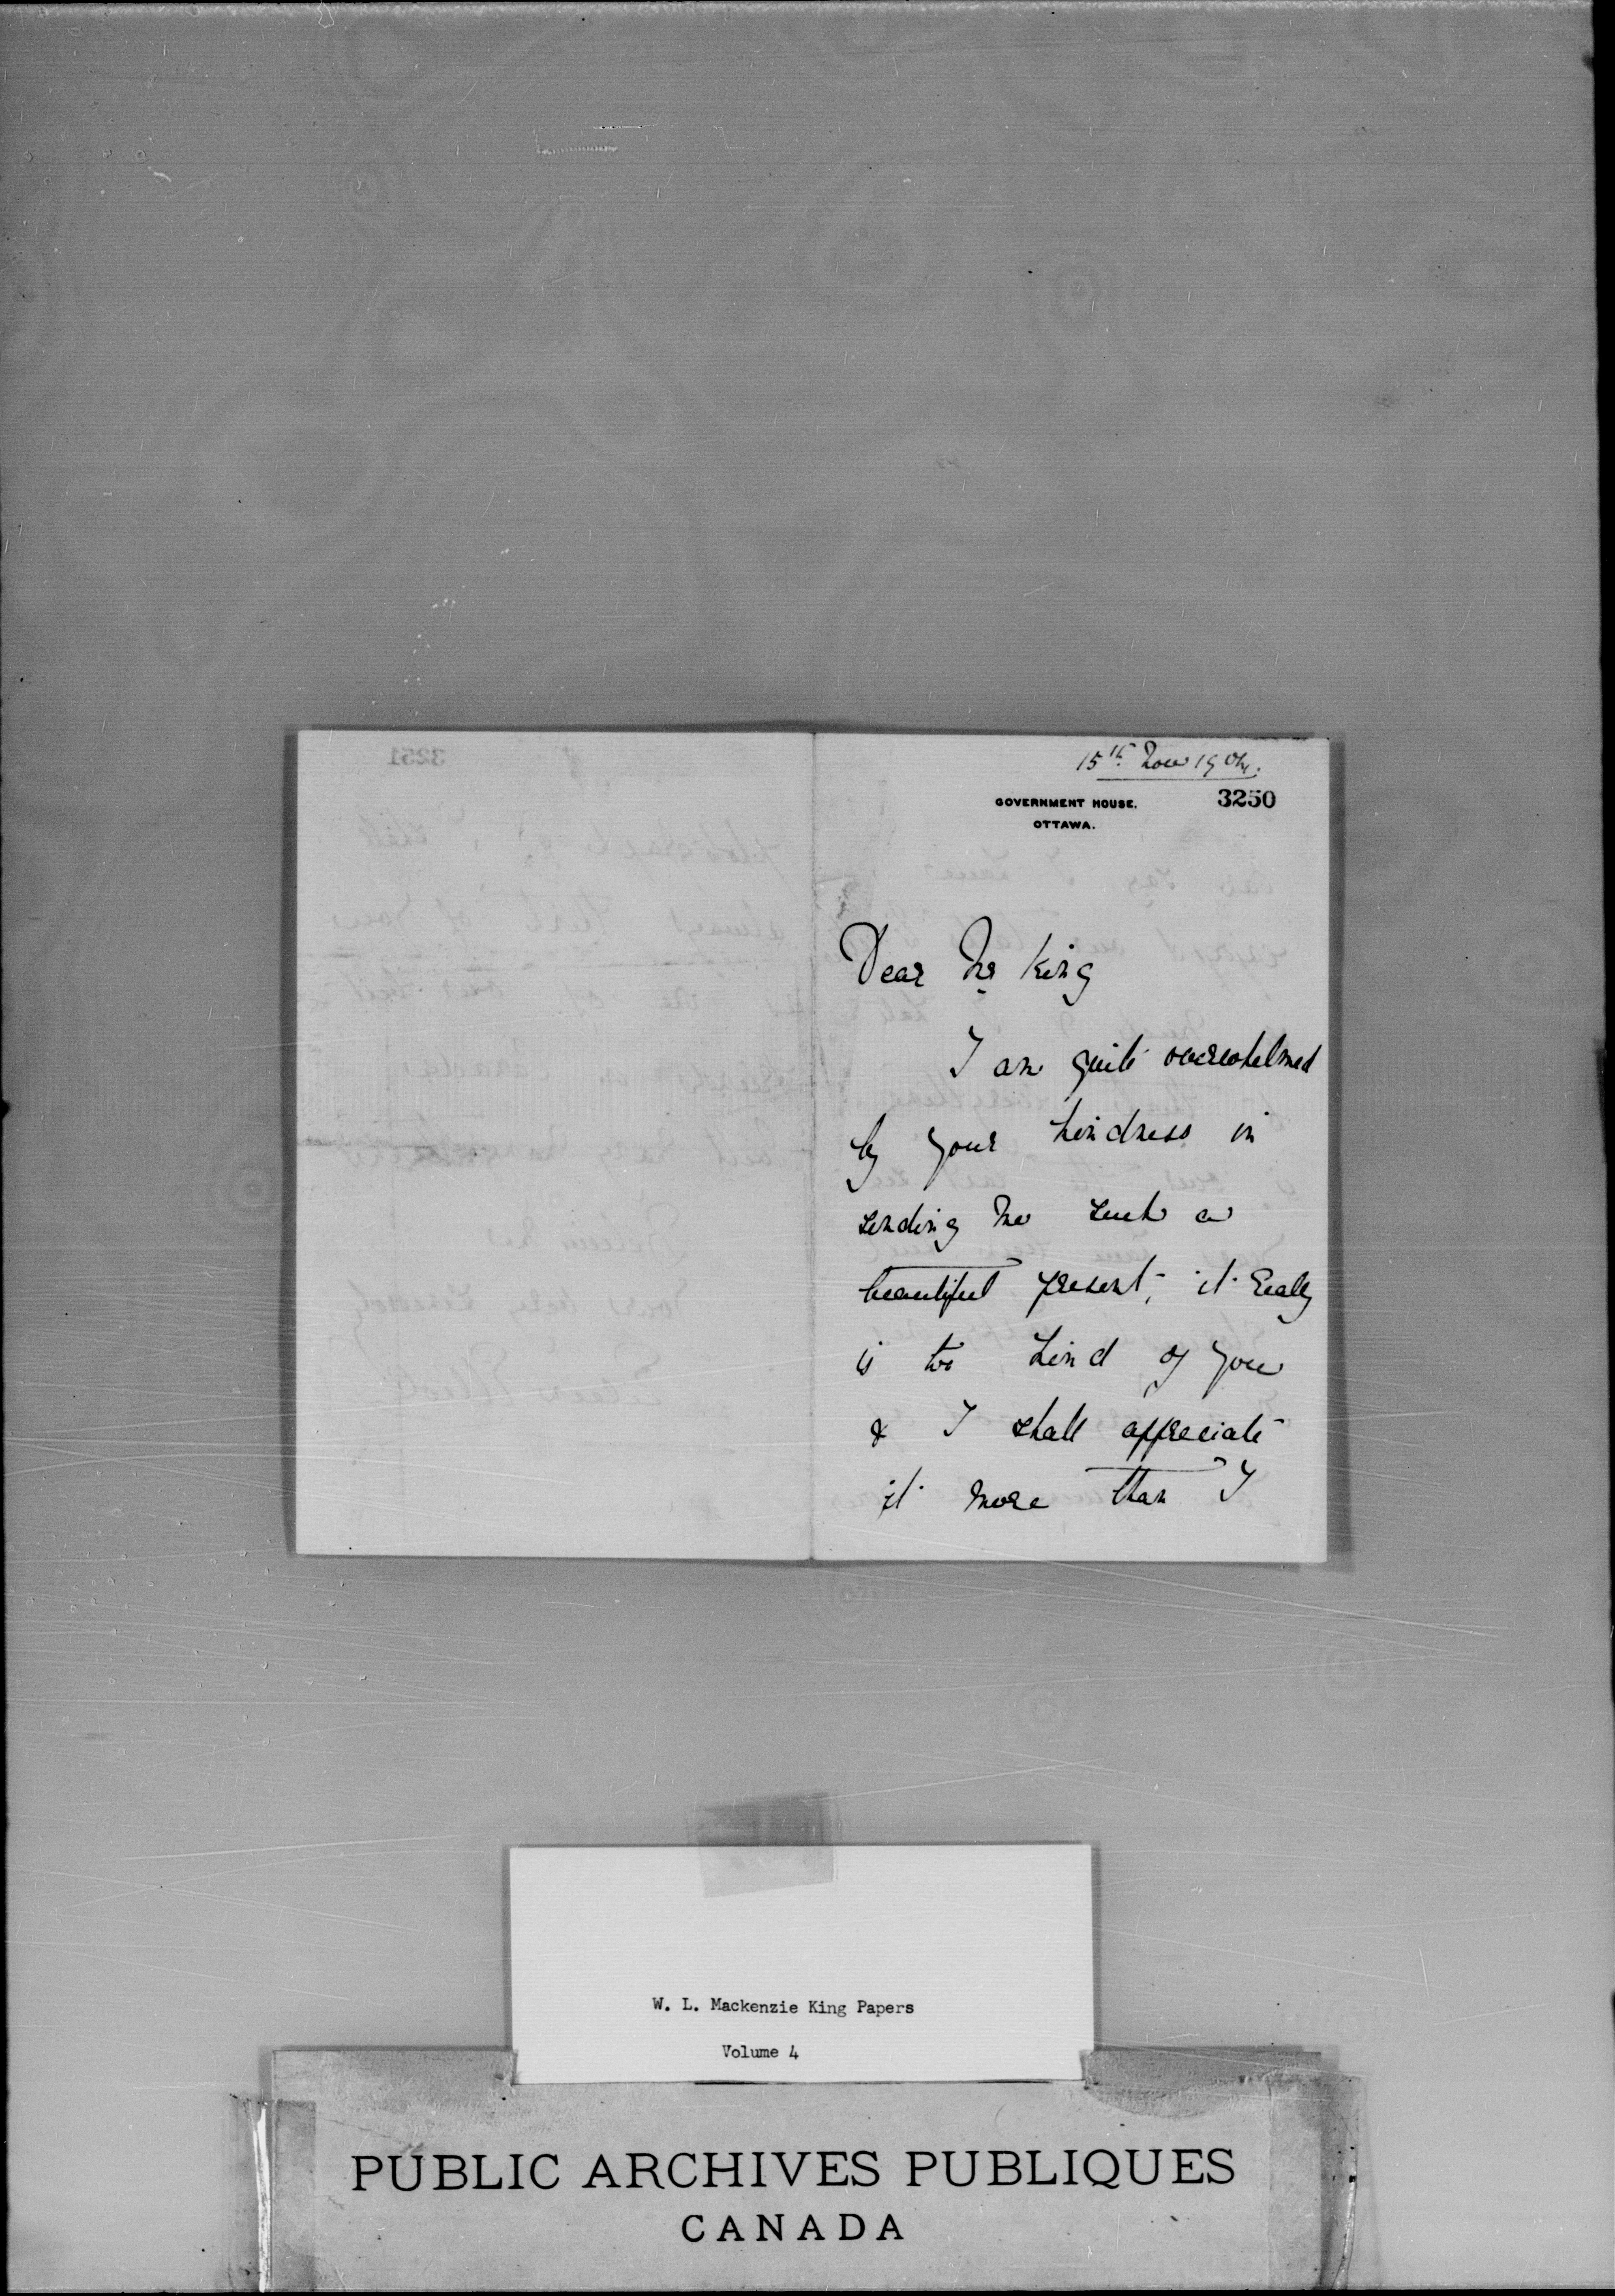 15th Nov 1904.
GOVERNMENT HOUSE. 3250
OTTAWA.
Dear Mr King
I am quite overwhelmed
by your kindness in
sending me such a
beautiful present, it really
is too kind of you
& I shall appreciate
it more than I
W. L. Mackenzie King Papers
Volume 4
PUBLIC ARCHIVES PUBLIQUES
CANADA